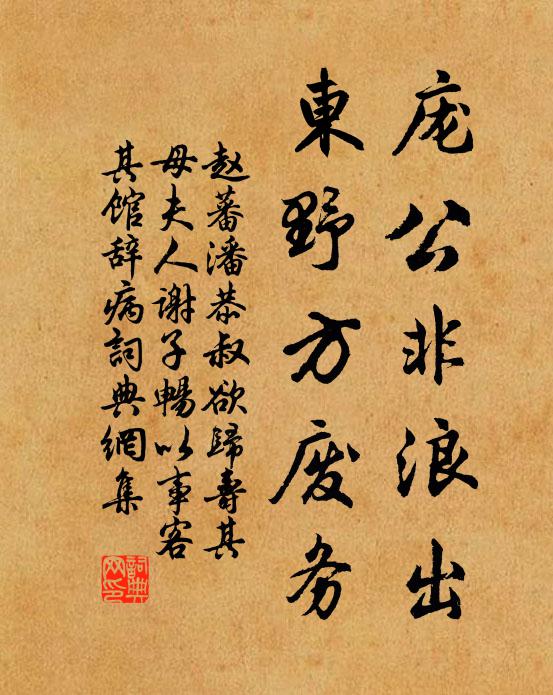 庞公非浪出
東野方废务
赵蕃潘恭叔欲歸壽其
母夫人谢子暢以事客
其馆辞病詞典網集
詞典网印